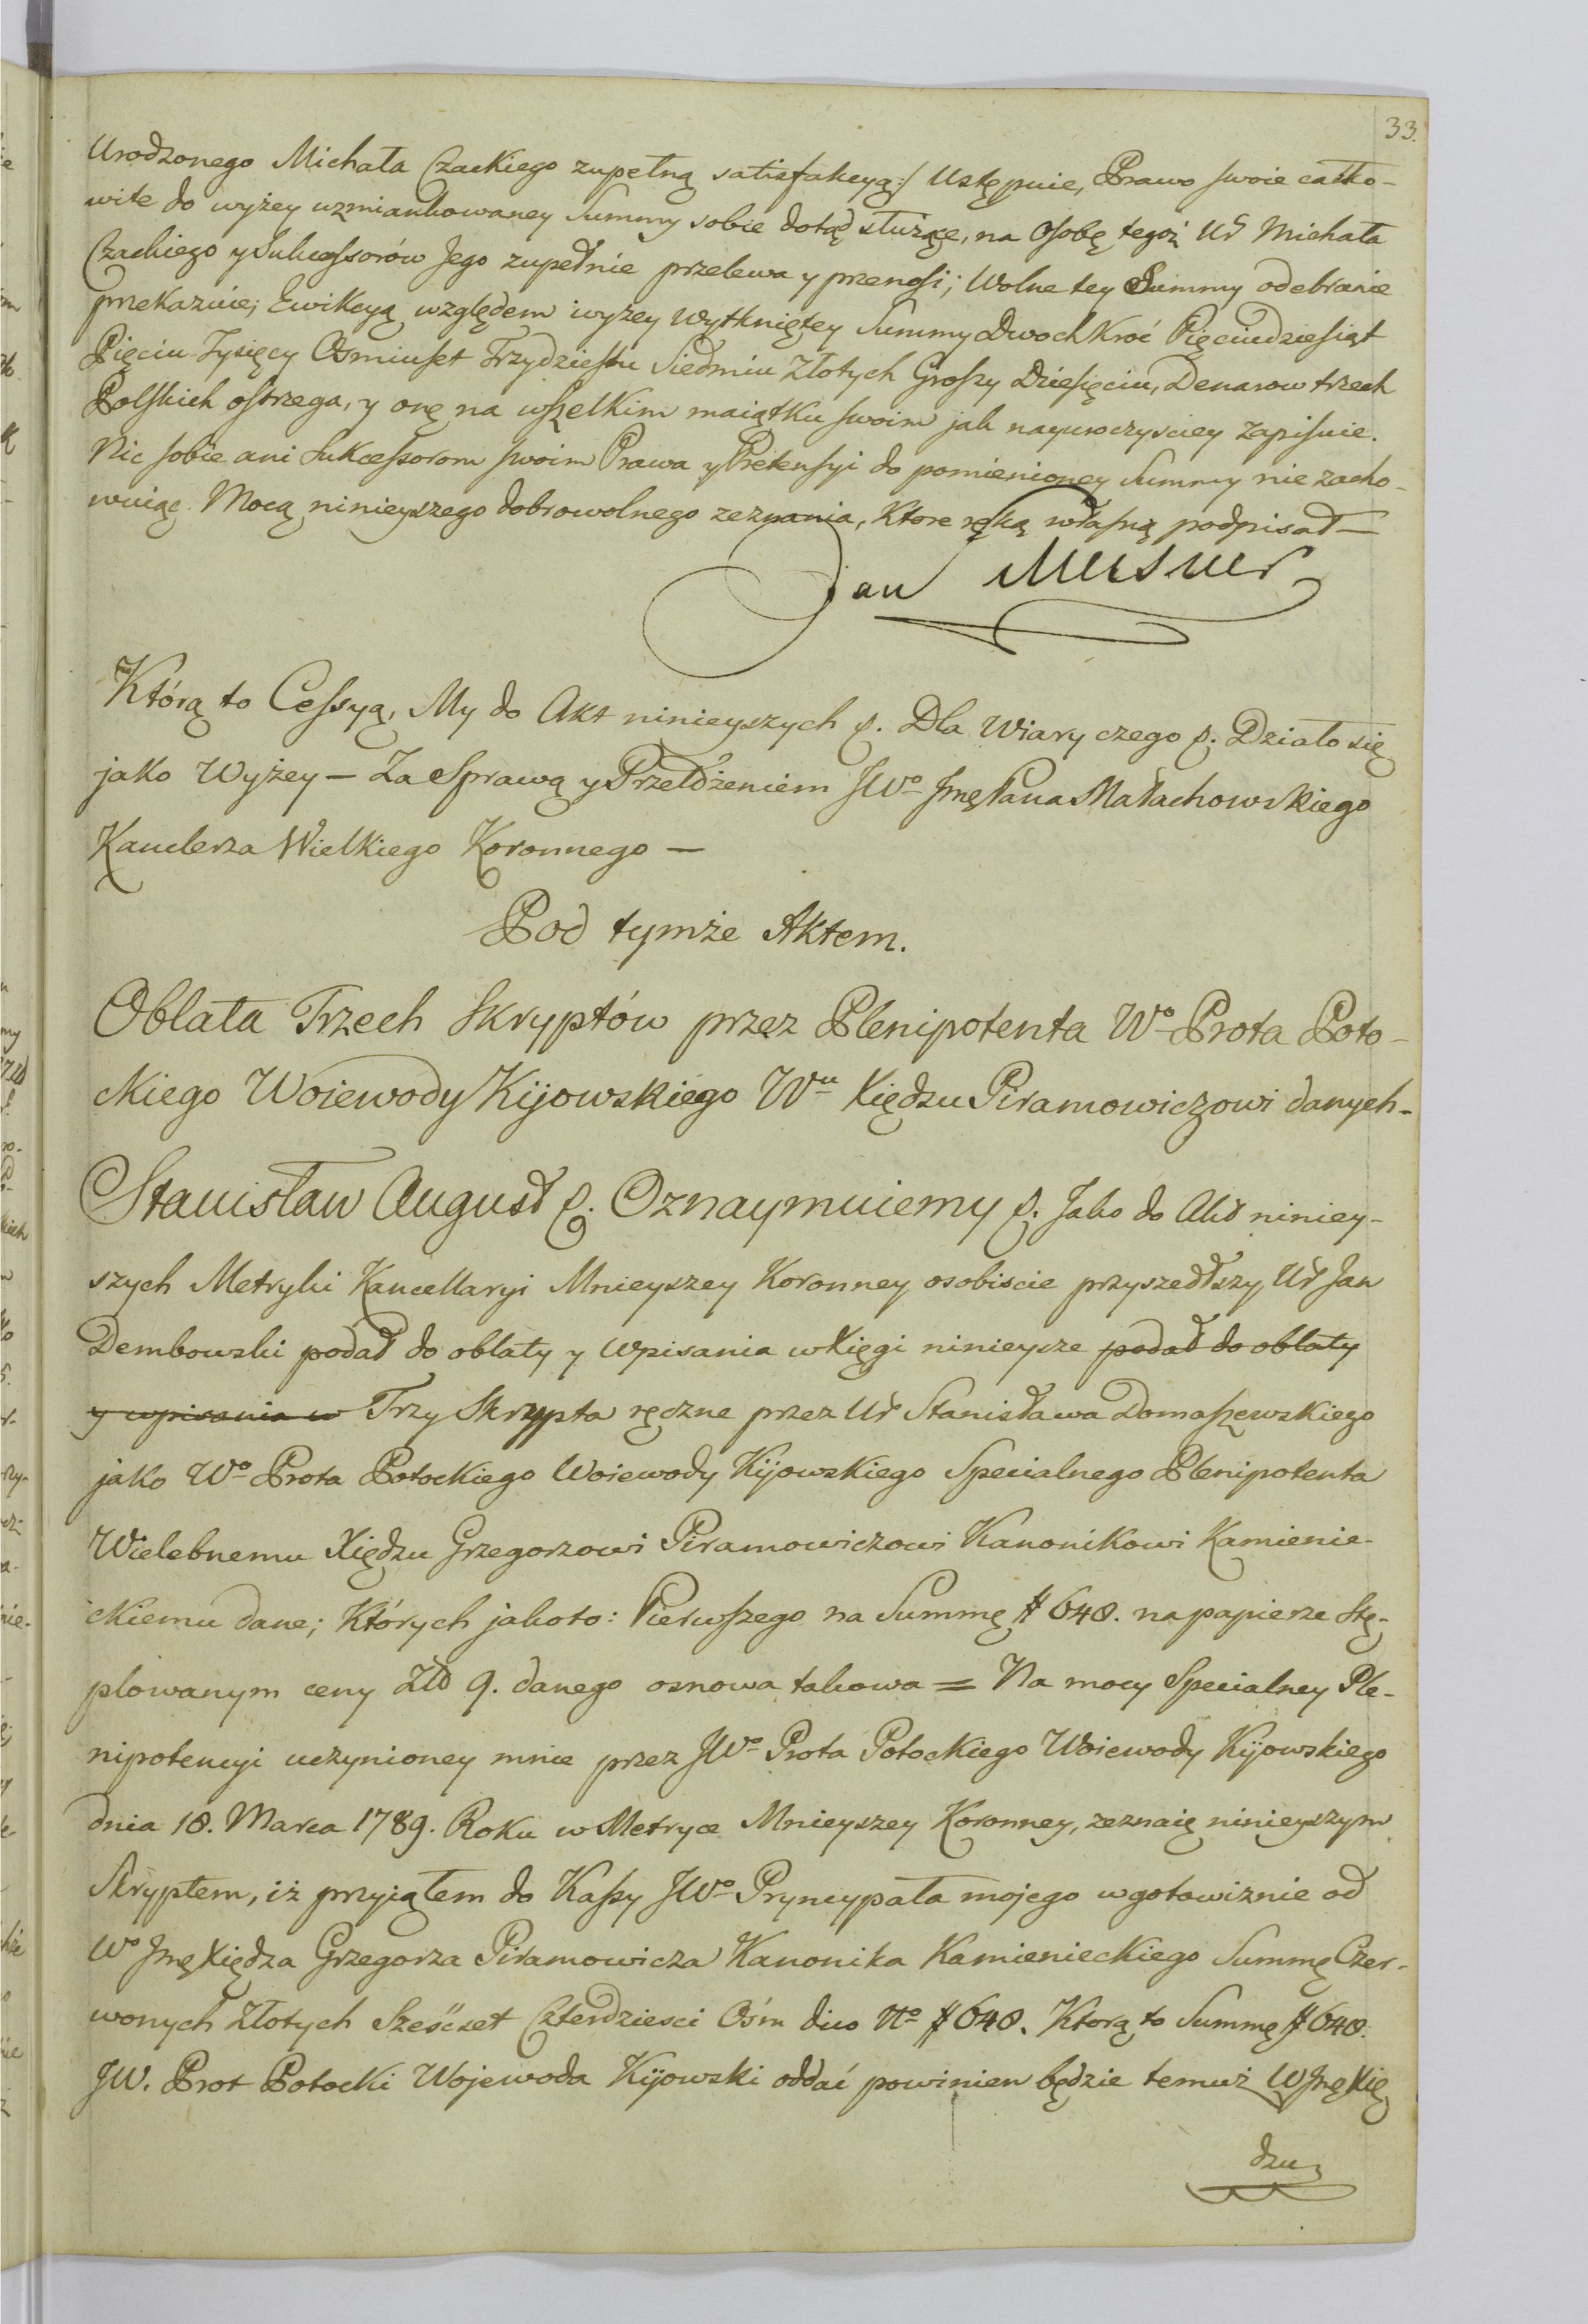 33.
Urodzonego Michała Czackiego zupełną satisfakcyą:/ Ustępuie, Prawo swoie całko-
wite do wyżey uzmiankowaney Summy sobie dotąd służące, na Osobę tegoż Ur Michała
Czackiego y Sukcessorów Jego zupełnie przelewa y przenosi; Wolne tey Summy odebranie
przekazuie; Ewikcyą względem wyżey wytkniętey Summy Dwoch Kroć Pięciudziesiąt
Pięciu Tysięcy Osmiuset Trzydziestu Siedmiu Złotych Groszy Dziesięciu, Denarow trzech
Polskich ostrzega, y onę na wszelkim maiątku swoim jak nayuroczysciey zapisuie.
Nic sobie ani Sukcessorom swoim Prawa y Pretensyi do pomienioney Summy nie zacho-
wuiąc. Mocą ninieyszego dobrowolnego zeznania, Ktore ręką własną podpisał —
Jan Meisner
Którą to Cessyą, My do Akt ninieyszych p. Dla Wiary czego p. Działo się
jako Wyżey — Za Sprawą y Przełożeniem JWo Jmę Pana Małachowskiego
Kanclerza Wielkiego Koronnego —
Pod tymże Aktem.
Oblata Trzech Skryptów przez Plenipotenta Wo Prota Poto-
ckiego Woiewody Kijowskiego Wu Xiędzu Piramowiczowi danych-
Stanisław August p. Oznaymuiemy p. Jako do Akt niniey-
szych Metryki Kancellaryi Mnieyszey Koronney osobiscie przyszedłszy Ur Jan
Dembowski podał do oblaty y wpisania w Xięgi ninieysze podał do oblaty
y wpisania w Trzy Skrypta ręczne przez Ur Stanisława Domaszewskiego
jako Wo Prota Potockiego Woiewody Kijowskiego Specialnego Plenipotenta
Wielebnemu Xiędzu Grzegorzowi Piramowiczowi Kanonikowi Kamienie-
ckiemu dane; Których jakoto: Pierwszego na Summę # 648. na papierze Stę-
plowanym ceny Złt 9. danego osnowa takowa = Na mocy Specialney Ple-
nipotencyi uczynioney mnie przez JWo Prota Potockiego Woiewody Kijowskiego
dnia 18. Marca 1789. Roku w Metryce Mnieyszey Koronney, zeznaię ninieyszym
Skryptem, iż przyiąłem do Kassy JWo Pryncypała mojego w gotowiznie od
Wo Jmę Xiędza Grzegorza Piramowicza Kanonika Kamienieckiego Summę Czer-
wonych Złotych Sześćset Czterdziesci Ośm dico No # 648. Ktorą to Summę # 648.
JW. Prot Potocki Wojewoda Kijowski oddać powinien będzie temuż WJmę Xię
dzu